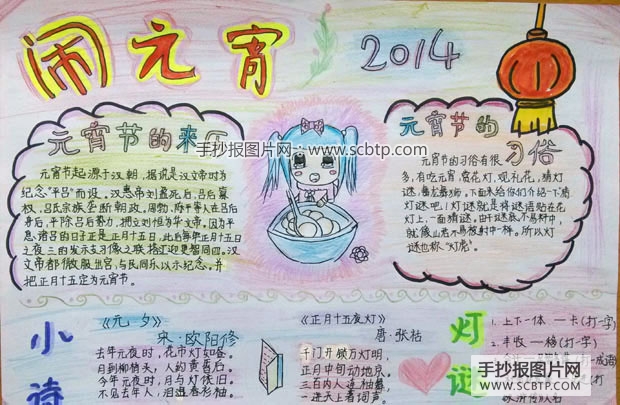 闹元宵
2014
手抄报图片网:www.scbtp.com
元宵节的来历
元宵节起源于汉朝,据说是汉文帝时为
纪念"平吕"而设。汉惠帝刘盈死后,吕后篡
权,吕氏宗族垄断朝政。周勃、陈平等人在吕后
专后,平除吕后势力,拥立刘恒为华文帝。因为平
息诸吕的日子正是正月十五日,此后每年正月十五日
之夜
文帝都微服出宫,与民同乐以示纪念。并
把正月十五定为元宵节。
元宵节的
习俗
元宵节的习俗有很
多,有吃元宵,赏花灯,观礼花,猜灯
谜,舞龙舞狮。下面来给你们介绍一下猜
灯谜吧!灯谜就是将谜语贴在花
灯上,一面猜谜。由于谜底不易猜中
就像山君不易被射中一样。所以灯
谜也称"灯虎"
小诗
《元夕》
宋·欧阳修
去年元夜时,花市灯如昼。
月到柳梢头,人约黄昏后。
今年元夜时,月与灯依旧。
不见去年人,泪湿春衫袖。
《正月十五夜灯》
唐·张祜
千门开锁万灯明,
正月中旬动地京,
三百内人连袖舞,
一进天上著词声。
灯谜
1. 上下一体 —卡(打一字)
2. 丰收 —移(打一字)
手抄报图片网
WWW.SCBTP.COM